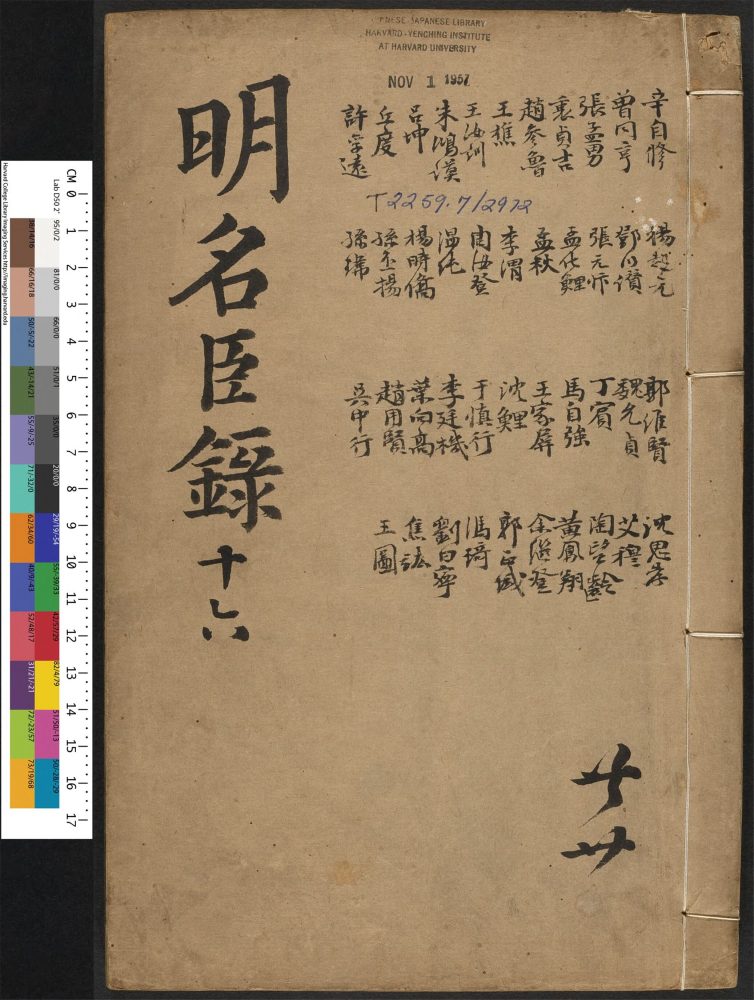 CHINESE JAPANESE LIBRARY
HARVARD-YENCHING INSTITUTE
AT HARVARD UNIVERSITY
NOV 1 1957
辛自修
曾同亨
張孟男
袁貞吉
趙參魯
王樵
王汝訓
朱鴻謨
呂坤
丘度
許孚遠
T2259.7/2972
楊起元
鄧以讚
張元忭
孟化鯉
孟秋
李渭
周汝登
溫純
楊時喬
孫丕揚
孫鑨
郭惟賢
魏允貞
丁賓
馬自強
王家屏
沈鯉
于慎行
李廷機
葉向高
趙用賢
吳中行
沈思孝
艾穆
陶望齡
黃鳳翔
余繼登
郭正域
馮琦
劉曰寧
焦竑
王圖
明名臣錄十六
廿
卅
CM 0 1 2 3 4 5 6 7 8 9 10 11 12 13 14 15 16 17
Harvard College Library Imaging Services http://imaging.harvard.edu